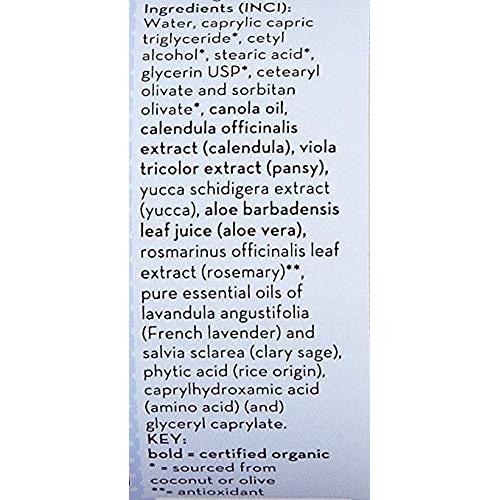 Ingredients (INCI):
Water, caprylic capric
triglyceride*, cetyl
alcohol*, stearic acid*,
glycerin USP*, cetearyl
olivate and sorbitan
olivate*, canola oil,
calendula officinalis
extract (calendula), viola
tricolor extract (pansy),
yucca schidigera extract
(yucca), aloe barbadensis
leaf juice (aloe vera),
rosmarinus officinalis leaf
extract (rosemary)**,
pure essential oils of
lavandula angustifolia
(French lavender) and
salvia sclarea (clary sage),
phytic acid (rice origin),
caprylhydroxamic acid
(amino acid) (and)
glyceryl caprylate.
KEY:
bold = certified organic
* = sourced from
coconut or olive
**= antioxidant